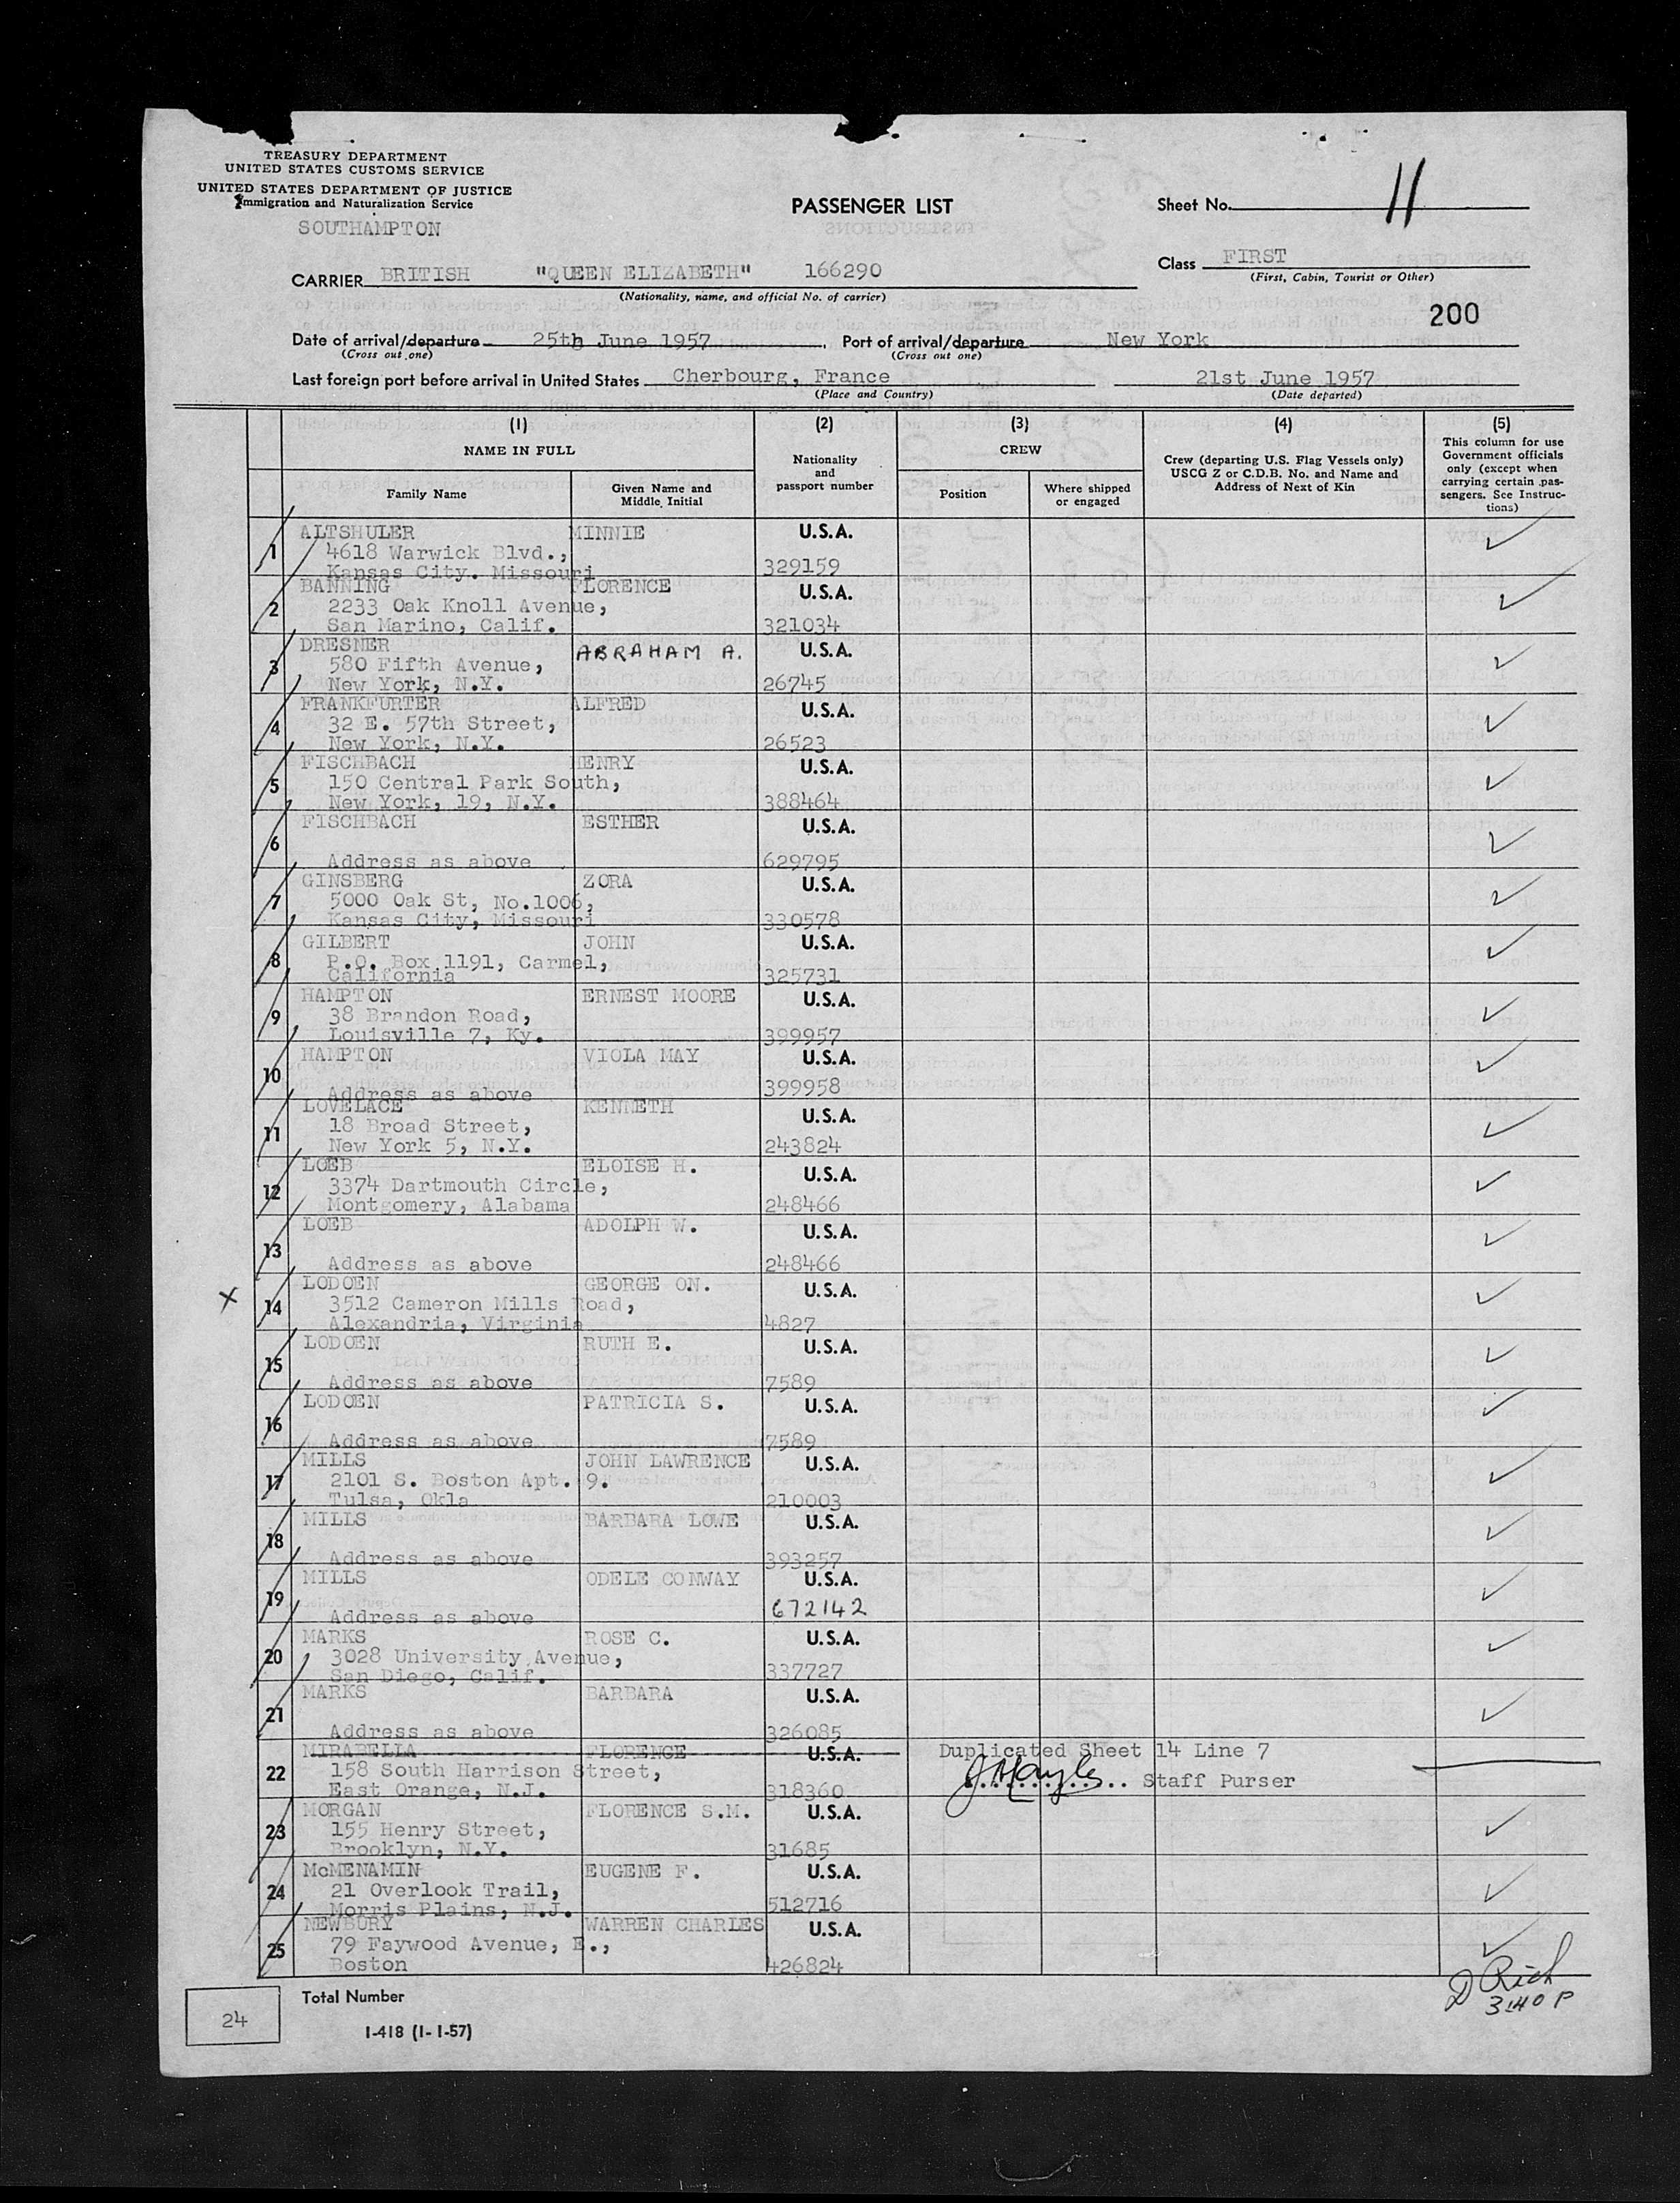 TREASURY DEPARTMENT
UNITED STATES CUSTOMS SERVICE
UNITED STATES DEPARTMENT OF JUSTICE
Immigration and Naturalization Service
SOUTHAMPTON
PASSENGER LIST
Sheet No. 11
CARRIER BRITISH "QUEEN ELIZABETH" 166290
(Nationality, name, and official No. of carrier)
Class FIRST
(First, Cabin, Tourist or Other)
200
Date of arrival/departure 25th June 1957, Port of arrival/departure New York
(Cross out one) (Cross out one)
Last foreign port before arrival in United States Cherbourg, France 21st June 1957
(Place and Country) (Date departed)
(1) (2) (3) (4) (5)
NAME IN FULL
Family Name
Given Name and Middle Initial
Nationality and passport number
CREW
Position
Where shipped or engaged
Crew (departing U.S. Flag Vessels only)
USCG Z or C.D.B. No. and Name and
Address of Next of Kin
This column for use
Government officials
only (except when
carrying certain pas-
sengers. See Instruc-
tions)
1 ALTSHULER MINNIE U.S.A.
4618 Warwick Blvd.,
Kansas City. Missouri 329159
2 BANNING FLORENCE U.S.A.
2233 Oak Knoll Avenue,
San Marino, Calif. 321034
3 DRESNER ABRAHAM A. U.S.A.
580 Fifth Avenue,
New York, N.Y. 26745
4 FRANKFURTER ALFRED U.S.A.
32 E. 57th Street,
New York, N.Y. 26523
5 FISCHBACH HENRY U.S.A.
150 Central Park South,
New York, 19, N.Y. 388464
6 FISCHBACH ESTHER U.S.A.
Address as above 629795
7 GINSBERG ZORA U.S.A.
5000 Oak St, No.1006,
Kansas City, Missouri 330578
8 GILBERT JOHN U.S.A.
P.O. Box 1191, Carmel,
California 325731
9 HAMPTON ERNEST MOORE U.S.A.
38 Brandon Road,
Louisville 7, Ky. 399957
10 HAMPTON VIOLA MAY U.S.A.
Address as above 399958
11 LOVELACE KENNETH U.S.A.
18 Broad Street,
New York 5, N.Y. 243824
12 LOEB ELOISE H. U.S.A.
3374 Dartmouth Circle,
Montgomery, Alabama 248466
13 LOEB ADOLPH W. U.S.A.
Address as above 248466
X 14 LODOEN GEORGE ON. U.S.A.
3512 Cameron Mills Road,
Alexandria, Virginia 4827
15 LODOEN RUTH E. U.S.A.
Address as above 7589
16 LODOEN PATRICIA S. U.S.A.
Address as above 7589
17 MILLS JOHN LAWRENCE U.S.A.
2101 S. Boston Apt. 9.
Tulsa, Okla 210003
18 MILLS BARBARA LOWE U.S.A.
Address as above 393257
19 MILLS ODELE CONWAY U.S.A.
Address as above 672142
20 MARKS ROSE C. U.S.A.
3028 University Avenue,
San Diego, Calif. 337727
21 MARKS BARBARA U.S.A.
Address as above 326085
22 MIRABELLA FLORENCE U.S.A. Duplicated Sheet 14 Line 7
158 South Harrison Street, Staff Purser
East Orange, N.J. 318360
23 MORGAN FLORENCE S.M. U.S.A.
155 Henry Street,
Brooklyn, N.Y. 31685
24 McMENAMIN EUGENE F. U.S.A.
21 Overlook Trail,
Morris Plains, N.J. 512716
25 NEWBURY WARREN CHARLES U.S.A.
79 Faywood Avenue, E.,
Boston 426824
D Rich
3:40 P
24 Total Number
I-418 (1-1-57)